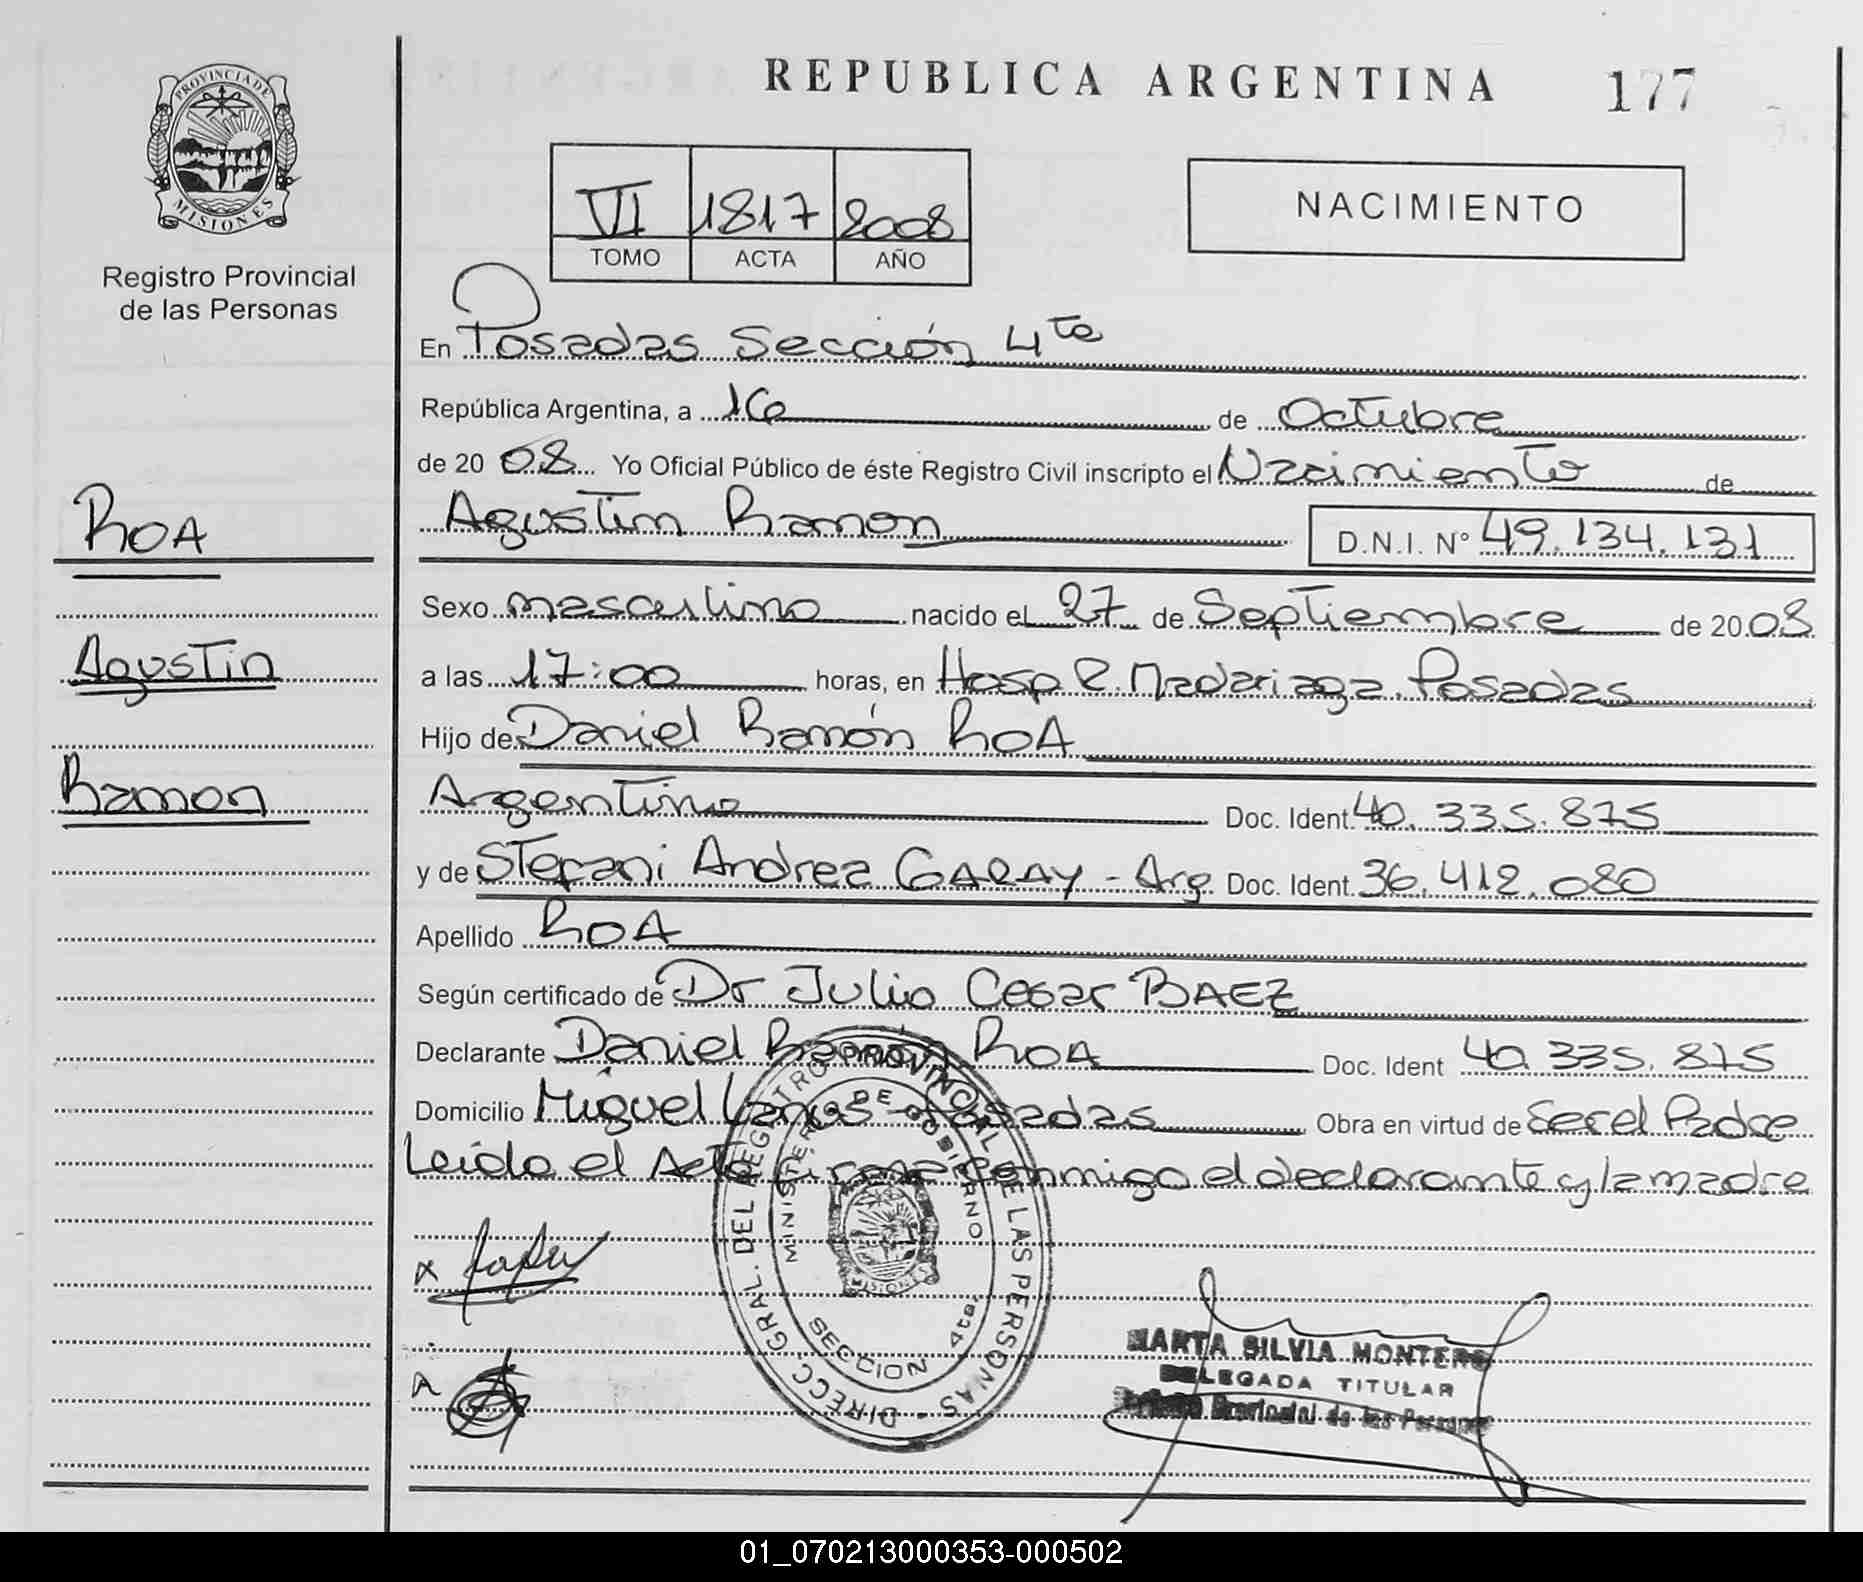 REPUBLICA ARGENTINA
177
PROVINCIA DE
MISIONES
Registro Provincial
de las Personas
VI 1817 2008
TOMO ACTA AÑO
NACIMIENTO
En Posadas Sección 4ta
República Argentina, a 16 de Octubre
de 20 08 Yo Oficial Público de éste Registro Civil inscripto el Nacimiento de
Agustin Ramon D.N.I. Nº 49.134.131
ROA
Agustin
Ramon
Sexo masculino nacido el 27 de Septiembre de 20 08
a las 17:00 horas, en Hosp R. Madariaga. Posadas
Hijo de Daniel Ramón ROA
Argentino Doc. Ident. 40.335.875
y de Stefani Andrea GARAY - Arg Doc. Ident. 36.412.080
Apellido ROA
Según certificado de Dr Julio Cesar BAEZ
Declarante Daniel Ramón ROA Doc. Ident 40.335.875
Domicilio Miguel Lanus - Posadas Obra en virtud de Ser el Padre
Leido el Acta firma conmigo el declarante y la madre
DIRECC. GRAL. DEL REGISTRO PROVINCIAL DE LAS PERSONAS -
MINISTERIO DE GOBIERNO
MISIONES
SECCION 4ta.
MARTA SILVIA MONTERO
DELEGADA TITULAR
Registro Provincial de las Personas
01_070213000353-000502